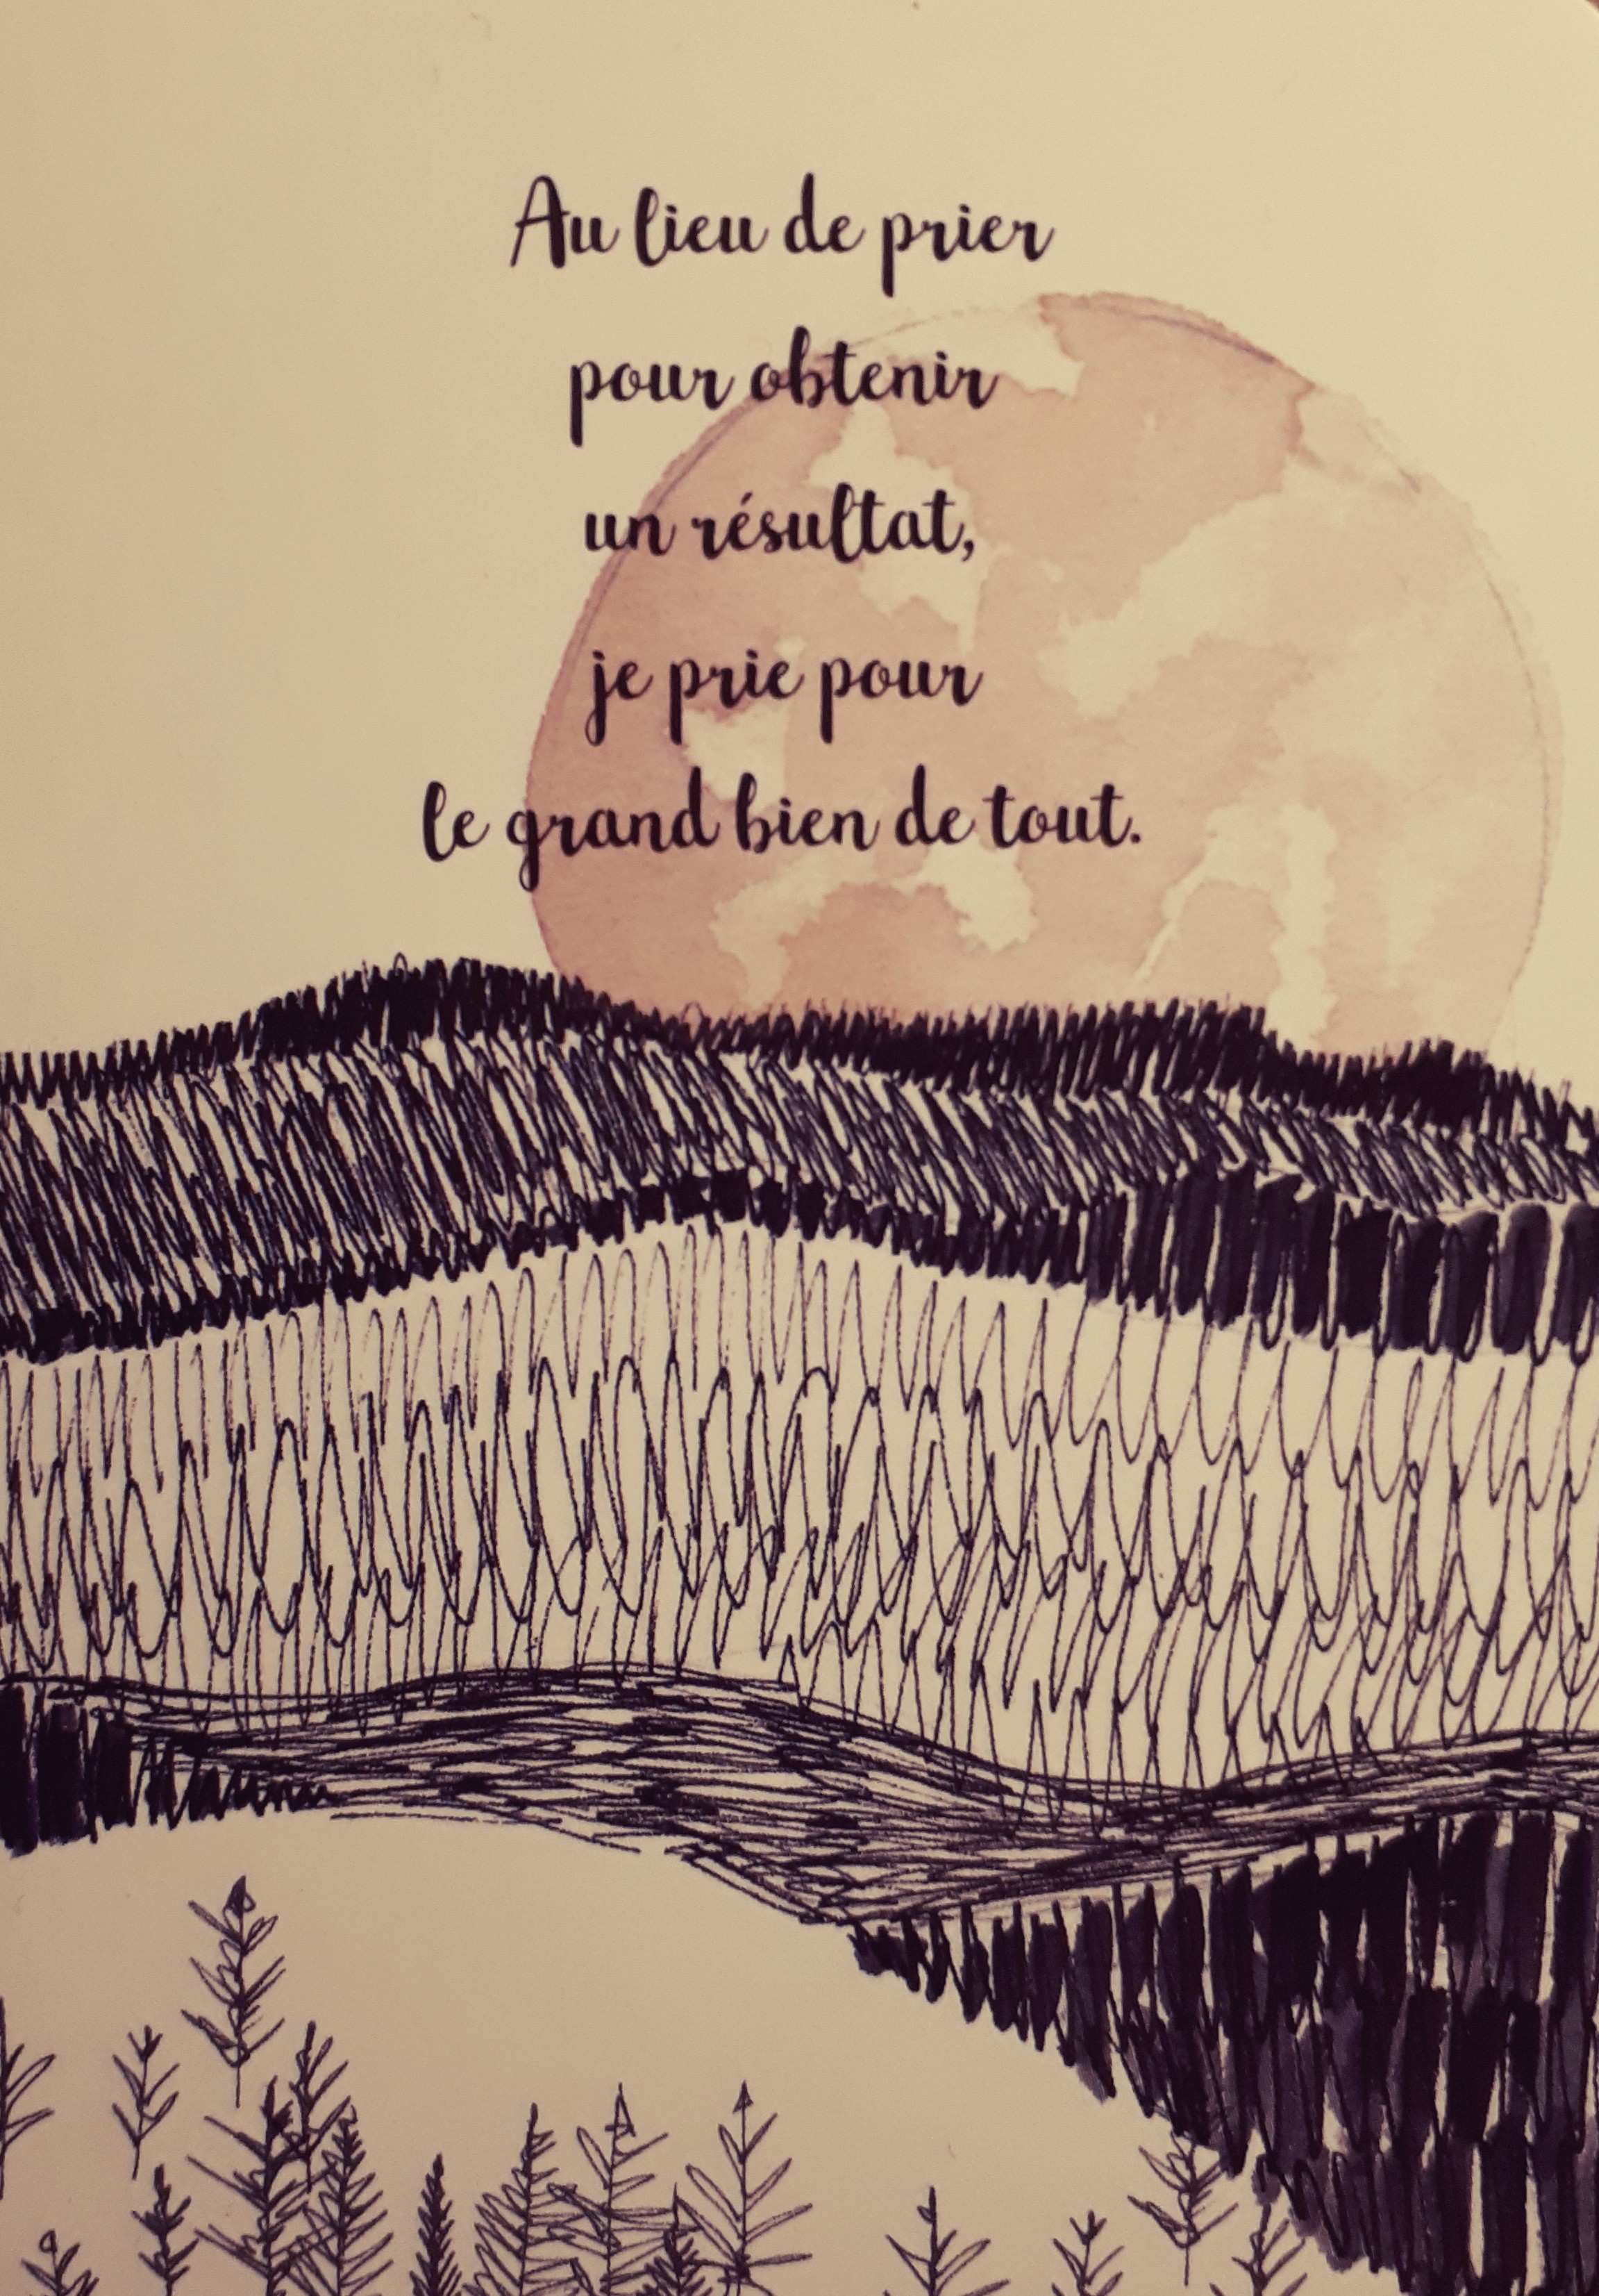 Au lieu de prier
pour obtenir
un résultat,
je prie pour
le grand bien de tout.